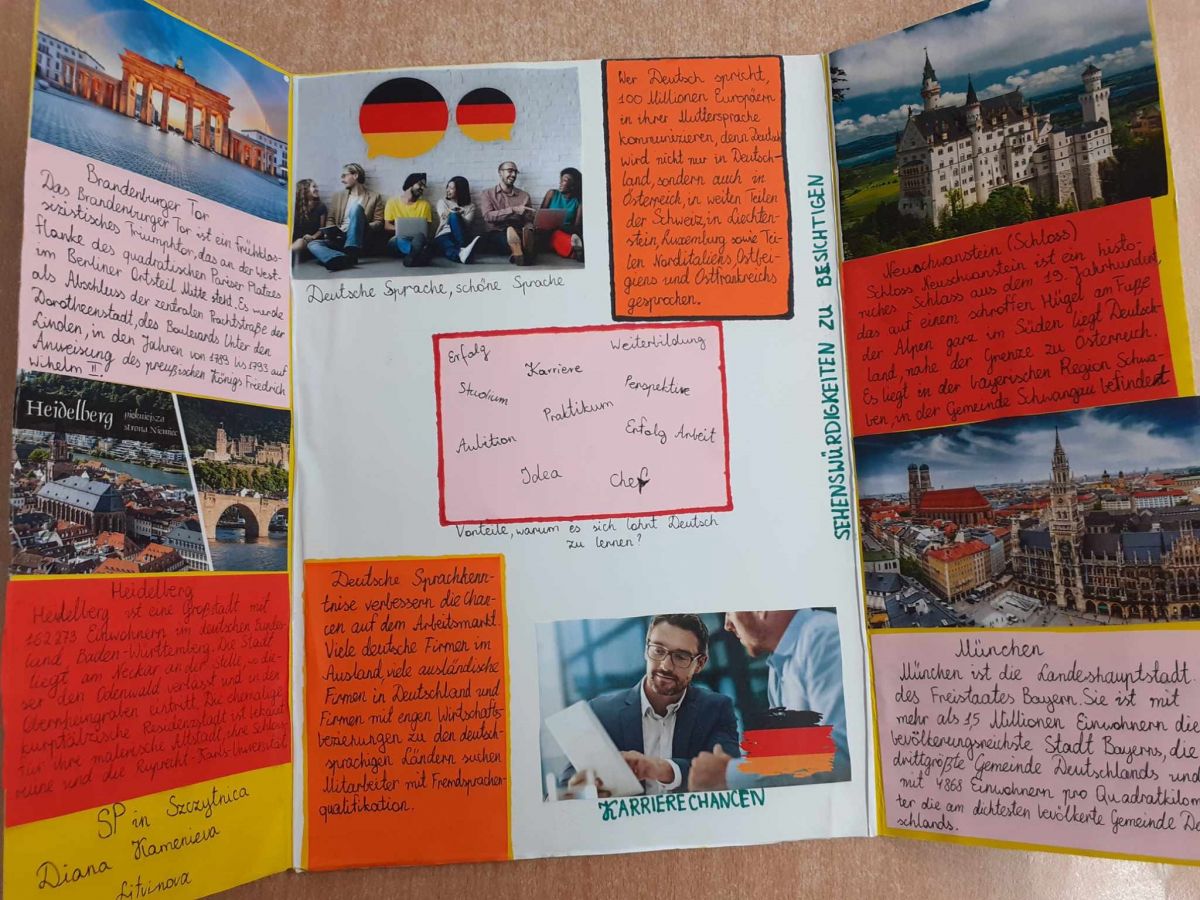 Brandenburger Tor
Das Brandenburger Tor ist ein Frühklas-
sizistisches Triumphtor, das an der West-
flanke des quadratischen Pariser Platzes
im Berliner Ortsteil Mitte steht. Es wurde
als Abschluss der zentralen Prachtstraße der
Dorotheenstadt, des Boulevards Unter den
Linden, in den Jahren von 1789 bis 1793 auf
Anweisung des preußischen Königs Friedrich
Wilhelm II.
Heidelberg
piękniejsza
strona Niemiec
Heidelberg
Heidelberg ist eine Großstadt mit
162 273 Einwohnern im deutschen Bundes-
land, Baden-Württemberg. Die Stadt
liegt am Neckar an der Stelle, wo die-
ser den Odenwald verlässt und in den
Oberrheingraben eintritt. Die ehemalige
kurpfälzische Residenzstadt ist bekannt
für ihre malerische Altstadt, ihre Schloss-
ruine und die Ruprecht-Karls-Universität
SP in Szczytnica
Diana Kamenieva
Litvinova
Deutsche Sprache, schöne Sprache
Wer Deutsch spricht,
100 Millionen Europäern
in ihrer Muttersprache
kommunizieren, denn Deutsch
wird nicht nur in Deutsch-
land, sondern auch in
Österreich, in weiten Teilen
der Schweiz, in Liechten-
stein, Luxemburg sowie Tei-
len Norditaliens, Ostbel-
giens und Ostfrankreichs
gesprochen.
Erfolg
Weiterbildung
Karriere
Studium
Perspektive
Praktikum
Aubition
Erfolg Arbeit
Idea
Chef
Vorteile, warum es sich lohnt Deutsch
zu lernen?
Deutsche Sprachkenn-
tnise verbessern die Chan-
cen auf dem Arbeitsmarkt.
Viele deutsche Firmen im
Ausland, viele ausländische
Firmen in Deutschland und
Firmen mit engen Wirtschafts-
bezierungen zu den deutsch-
sprachigen Ländern suchen
Mitarbeiter mit Fremdsprachen-
qualifikation.
KARRIERECHANCEN
SEHENSWÜRDIGKEITEN ZU BESICHTIGEN
Neuschwanstein (Schloss)
Schloss Neuschwanstein ist ein histo-
risches Schlass aus dem 19. Jahrhundert,
das auf einem schroffen Hügel am Fuße
der Alpen ganz im Süden liegt Deutsch-
land, nahe der Grenze zu Österreich.
Es liegt in der bayerischen Region Schwa-
ben, in der Gemeinde Schwangau befindert
München
München ist die Landeshauptstadt
des Freistaates Bayern. Sie ist mit
mehr als 1,5 Millionen Einwohnern die
bevölkerungsreichste Stadt Bayerns, die
drittgrößte Gemeinde Deutschlands und
mit 4868 Einwohnern pro Quadratkilome-
ter die am dichtesten bevölkerte Gemeinde De
schlands.